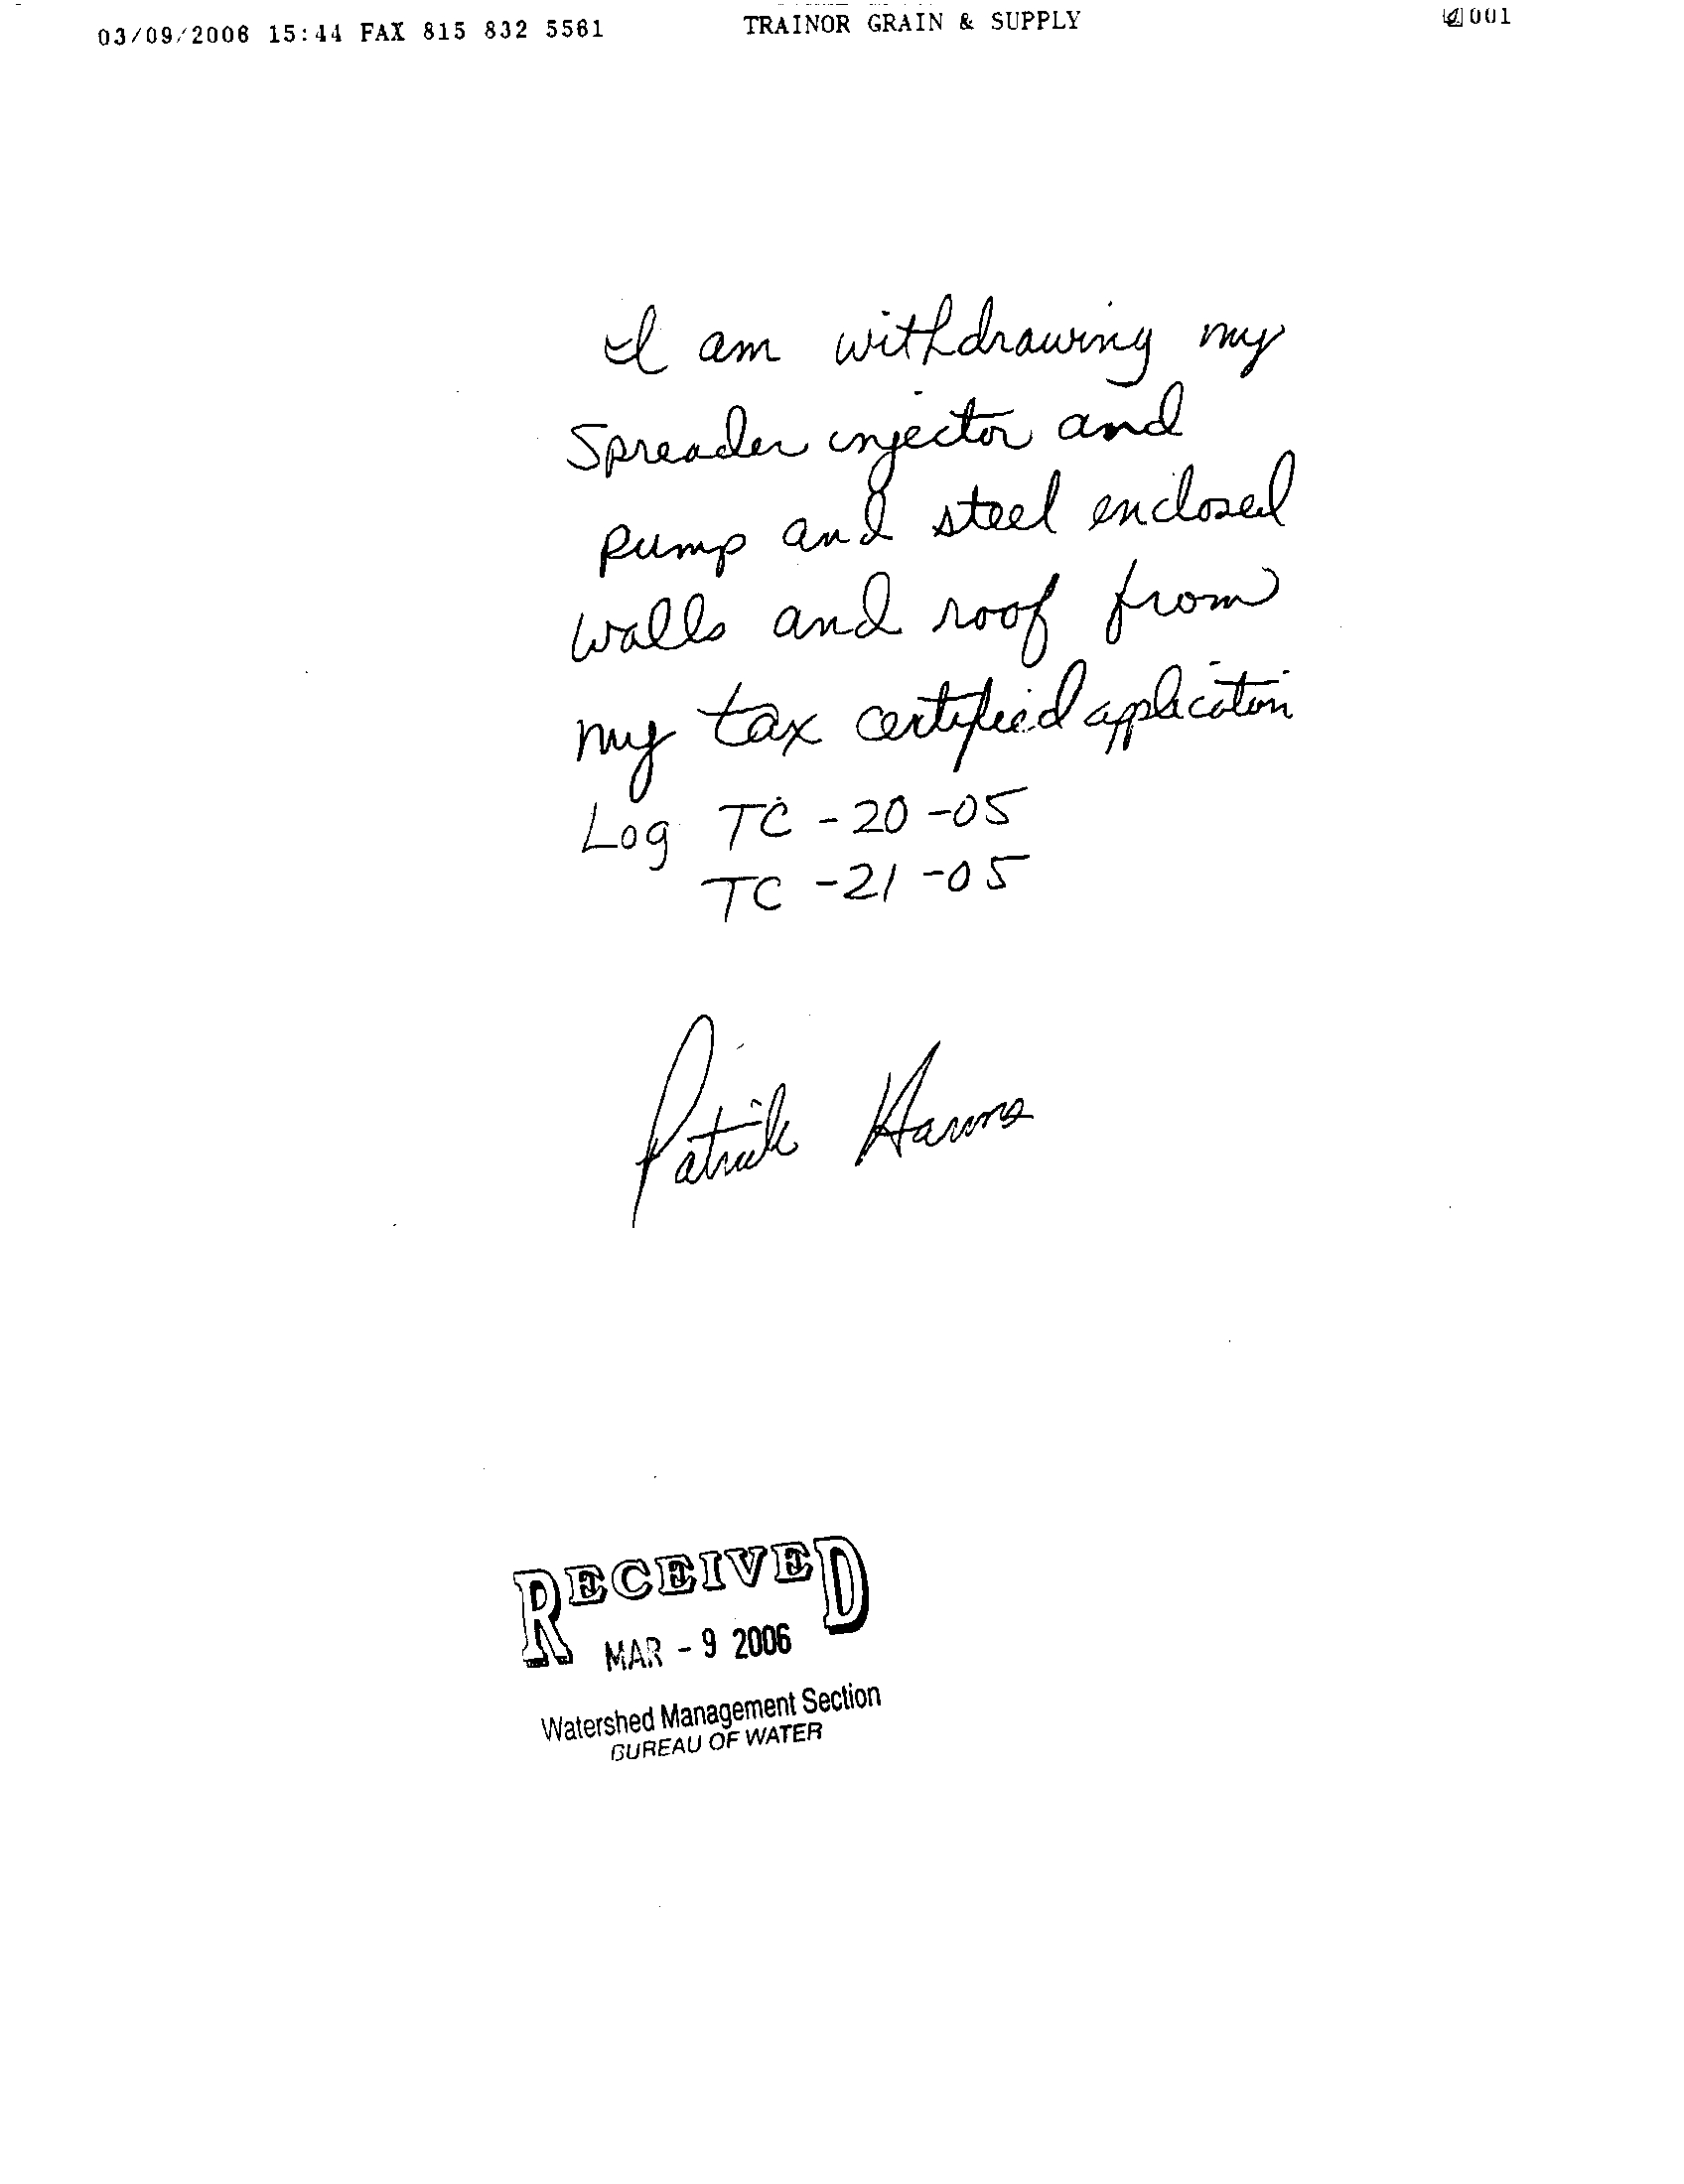 03/09/2006 15:44 FAX 815 832 5561 TRAINOR GRAIN & SUPPLY 001
I am withdrawing my
Spreader injector and
pump and steel enclosed
walls and roof from
my tax certified application
Log TC-20-05
TC-21-05
Patrick Harms
RECEIVED
MAR - 9 2006
Watershed Management Section
BUREAU OF WATER